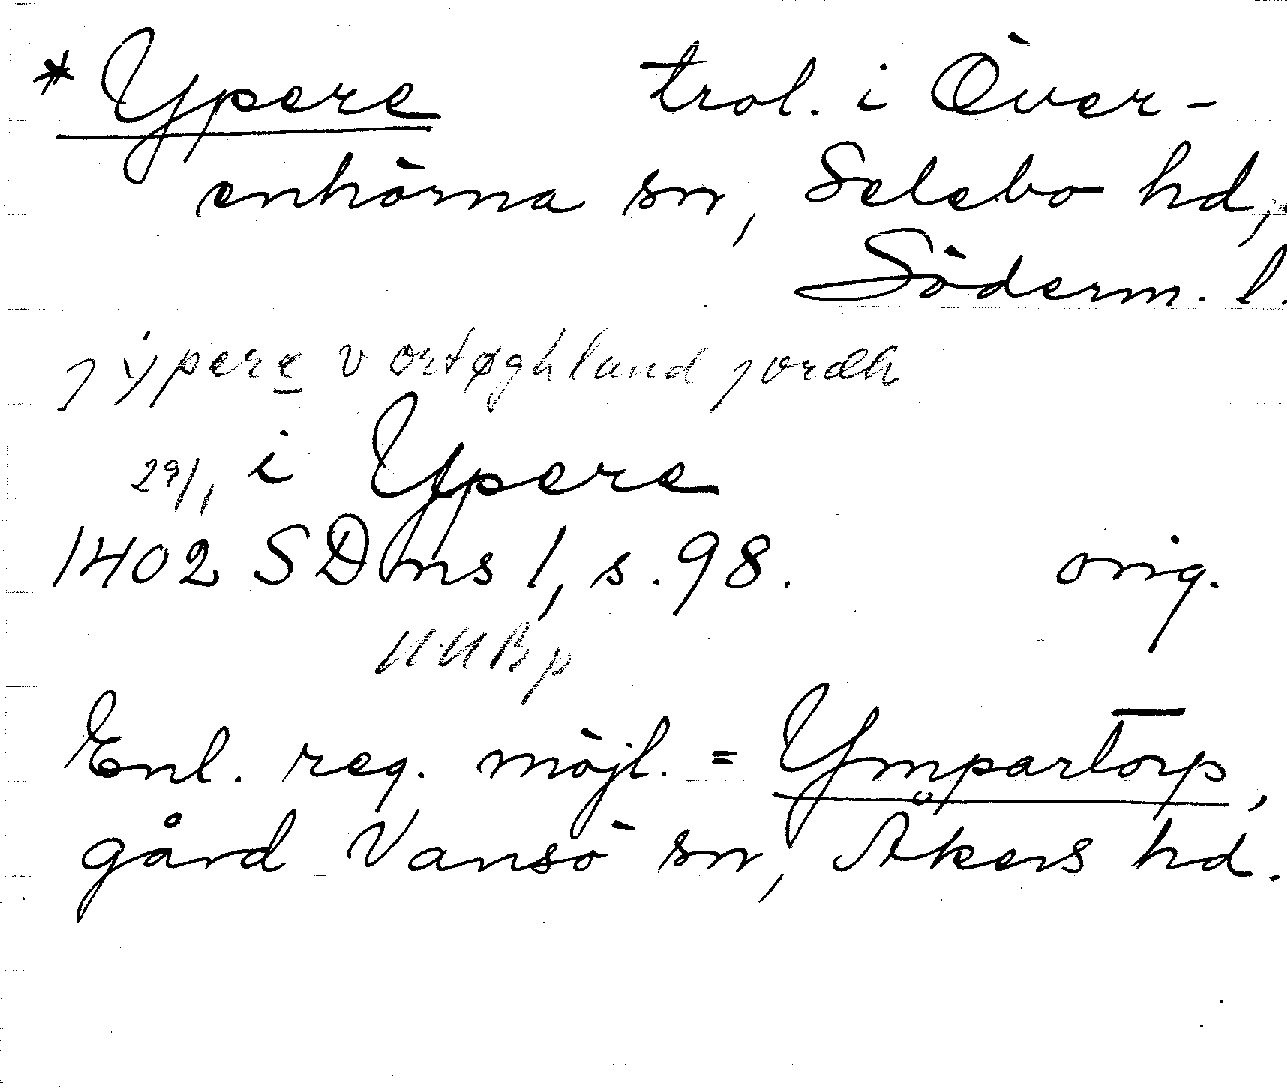 * Ypere trol. i Över-
enhörna sn, Selebo hd,
Söderm. l.
j ÿpere v ortøghland jordh
29/1 i Ypere
1402 SD ns 1, s. 98. orig.
UUB p
Enl. reg. möjl. = Ympartorp,
gård Vansö sn, Åkers hd.